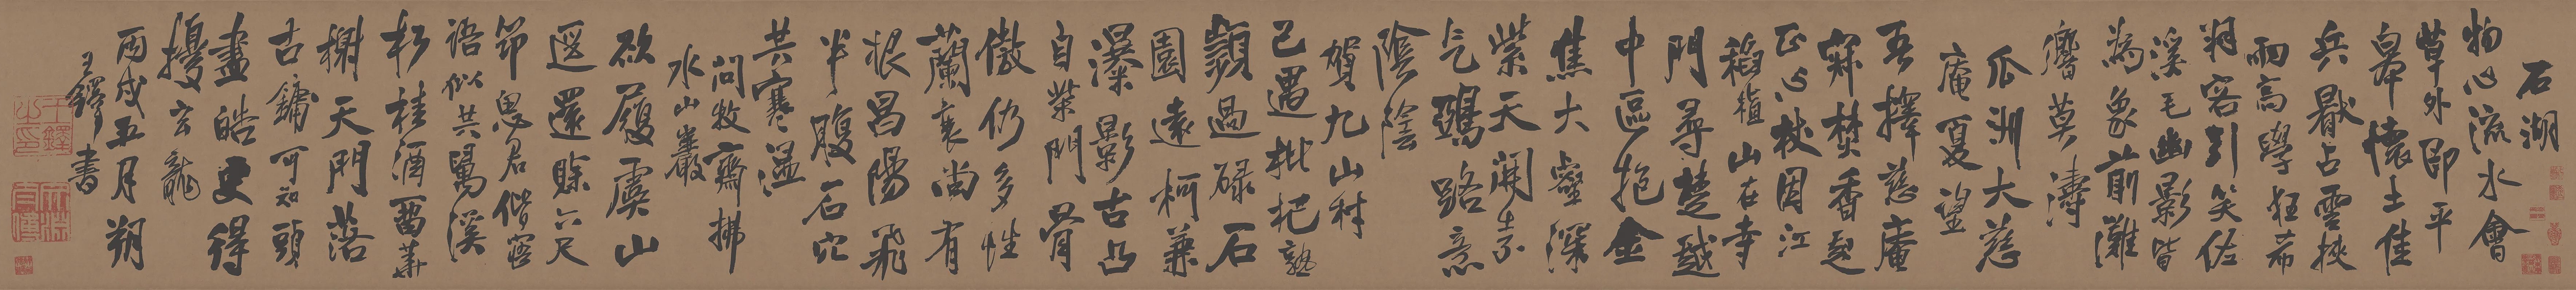 石湖
物心流水會
草外即平
皋懷土佳
兵猒占雲挾
雨高學狂希
羽客引笑佐
溪毛幽影皆
為象前灘
響莫濤
瓜洲大慈
庵夏望
吾擇慈庵
寐焚香起
正心杖固江
稻植山在寺
門尋楚越
中區抱金
焦大壑深
紫天開
气鷗路意
陰陰
賀九山村
已遇枇杷熟
顥過碌石
園遠柯兼
瀑影古凸
自柴門骨
傲仍多性
蘭衰尚有
根昌陽飛
半腹石穴
共寒溫
問牧齋拂
水山巖
欲履虞山
遐還賒六尺
笻思君偕窓
語似共舅溪
杉桂酒留華
榭天門落
古鏞可知頭
盡皓更得
擾玄龍
丙戌五月朔
王鐸書
王鐸之印